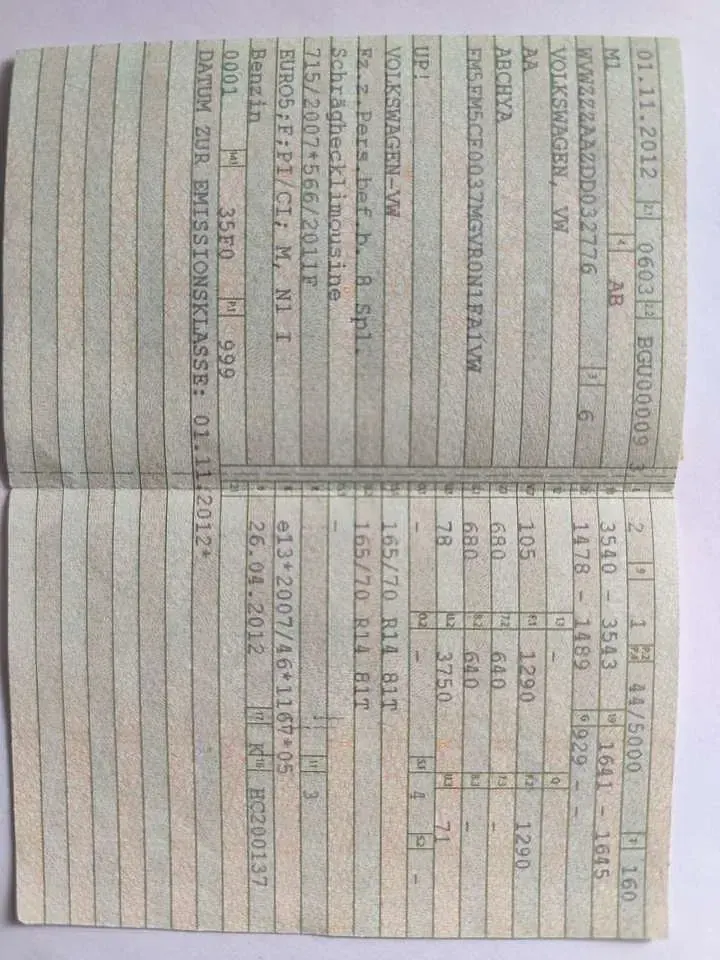 01.11.2012 2.1 0603 2.2 BGU00009 3
M1 4 AB
WVWZZZAAZDD032776 3 6
VOLKSWAGEN, VW
AA
ABCHYA
FM5FM5CF0037MGVR0N1FA1VW
UP!
VOLKSWAGEN-VW
Fz.z.Pers.bef.b. 8 Spl.
Schräghecklimousine
715/2007*566/2011F
EURO5;F;PI/CI; M, N1 I
Benzin
0001 14.1 35F0 P.1 999
DATUM ZUR EMISSIONSKLASSE: 01.11.2012*
2 9 1 P.2 P.4 44/5000 T 160
3540 - 3543 19 1641 - 1645
1478 - 1489 G 929 - -
13 - Q
105 F.1 1290 F.2 1290
680 7.2 640 7.3 -
680 8.2 640 8.3 -
78 U.2 3750 U.3 71
- O.2 - S.1 4 S.2 -
165/70 R14 81T
165/70 R14 81T
-
11 3
e13*2007/46*1167*05
26.04.2012 17 K 16 HC200137